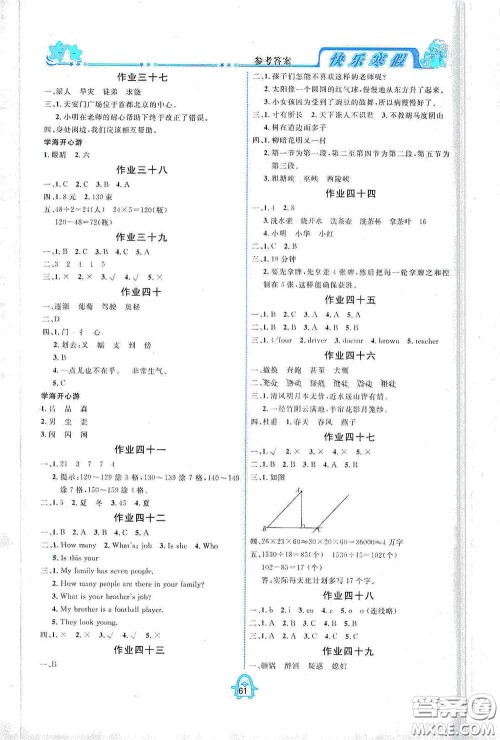 参考答案
快乐寒假
作业三十七
一、蒙人 旱灾 徒弟 求饶
三、1.天安门广场位于首都北京的中心。
2.小明在老师的耐心帮助下终于改正了错误。
四、身处困境,我们应该相互帮助。
学海开心游
1.眼睛 2.六
作业三十八
一、1.C 2.B 3.B 4.A
四、1.8元 2.130束
五、48÷2=24(人) 24×5=120(瓶)
120-48=72(瓶)
作业三十九
一、1.B 2.C 3.A 4.A 5.C
二、3 2 4 1 5
三、1.× 2.× 3.√ 4.× 5.×
作业四十
一、逐渐 葡萄 驾驶 奥秘
二、D
四、1.门 扌 心
3.划去:又 幅 支 到 傍
4.一点儿也不在乎。 非常生气。
学海开心游
1.吕 品 森
2.男 尘 歪
3.闪 闲 闭
作业四十一
一、1.21 3 7 7 4
2.提示:110~119涂3格,120~129
涂7格,130~139涂5格,140~149
涂7格,150~159涂6格。
二、1.√ 2.夏 冬 3.√ 4.√
作业四十二
一、1.B 2.A 3.B 4.B 5.B
二、1.How many 2.What's; job 3.Is she
5.Is this your
三、1.My family has seven people.
2.How many people are there in your family?
3.What is your brother's job?
4.My brother is a football player.
5.They look young.
四、1.× 2.× 3.√ 4.× 5.×
作业四十三
一、B
二、1.孩子们怎能不喜欢这样的老师呢?
2.太阳像一个圆圆的红气球,慢慢地从东方升起来。
3.小女孩因为受到了豌豆的鼓舞,所以病慢慢好了。
三、1.寸有所长 2.天下谁人不识君 3.不以物喜
4.树在道边而多子
四、1.柳暗花明又一村
2.第一节为第一段,第二至第四节为第二段,第五节为
第三段。
3.瞿塘峡 巫峡 西陵峡
作业四十四
一、1.4 2.8
二、3.洗水壶 烧开水 洗茶壶 洗茶杯 拿茶叶 16
4.小明 小华 小红
三、1.19分钟
2.要先拿牌,先拿4张牌,然后把每一轮拿牌之和控
制在5张,这样能确保获胜。
作业四十五
一、1.D 2.C 3.A 4.C 5.A
二、1.B 2.A 3.C 4.A 5.A
三、1.4/four 2.driver 3.doctor 4.brother 5.teacher
作业四十六
一、2.清风明月本无价,近水远山皆有情。
二、一径竹阴云满地,半帘花影月笼纱。
四、杜爵 1.春天 春风 燕子
作业四十七
一、1.B 2.C 3.B 4.C 5.B
二、1.× 2.× 3.× 4.√ 5.√
三、1.如图
A
B
C
四、26×23×60≈30×20×60=36000≈4万字
五、1530÷18=85(个) 1530÷15=102(个)
102-85=17(个)
答:实际每天比计划多写17个字。
作业四十八
一、1.mb 2.ea 3.nf 4.ch 5.o(连线略)
二、1.A 2.B 3.A 4.C 5.C
三、1.B 2.A 3.C 4.B 5.C
作业四十九
61
答案圈
MXQE.COM